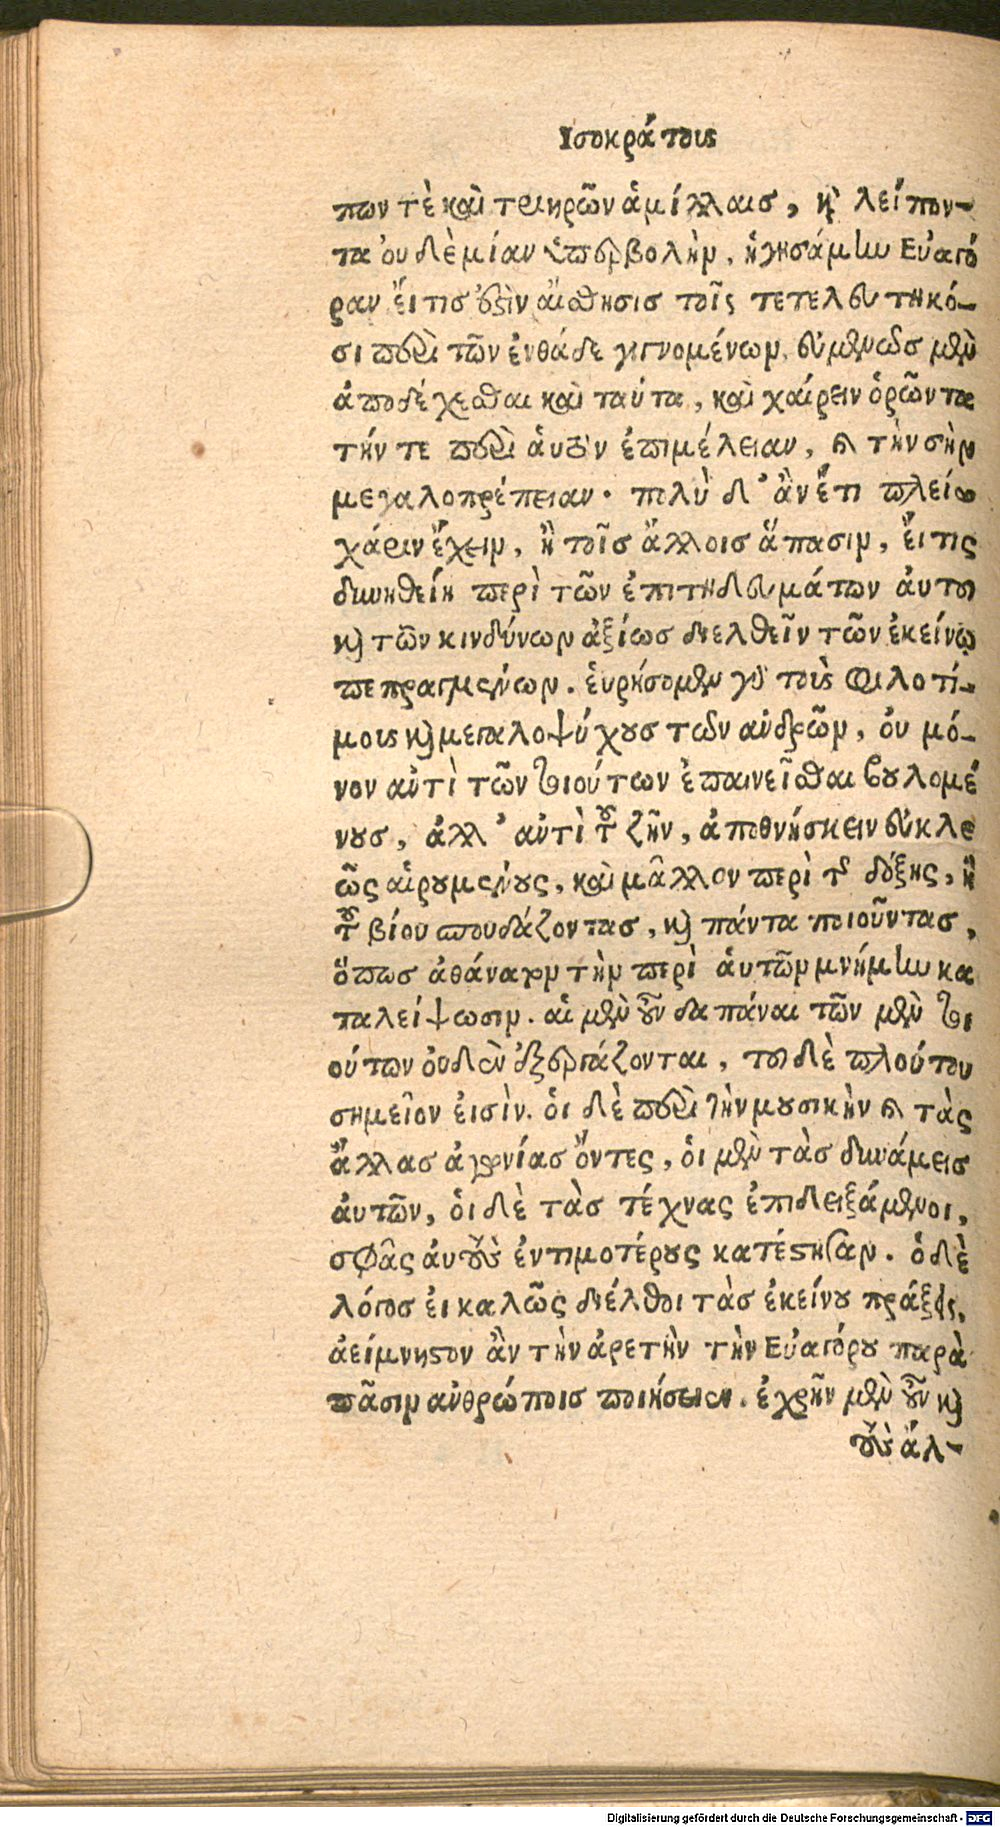 Ισοκράτους
πων τὲ καὶ τριηρῶν ἁμίλλαις, καὶ λείπον-
τα ὀυδεμίαν ὑπερβολὴν, ἡγησάμην Εὐαγό
ραν, ἔι τις ὀςὶν αἴσθησις τοῖς τετελευτηκό-
σι περὶ τῶν ἐνθάδε γιγνομένων, εὐμενῶς μὲν
ἀποδέχεσθαι καὶ ταύτα, καὶ χαίρειν ὁρῶντα
τήν τε περὶ ἁυτὸν ἐπιμέλειαν, καὶ τὴν σὴν
μεγαλοπρέπειαν. πολὺ δ' ἂν ἔτι πλείω
χάριν ἔχειν, ἢ τοῖς ἄλλοις ἅπασιν, ἔι τις
δυνηθείη περὶ τῶν ἐπιτηδευμάτων ἀυτοῦ
καὶ τῶν κινδύνων ἀξίως διελθεῖν τῶν ἐκείνῳ
πεπραγμένων. ἑυρήσομεν γὰρ τοὺς φιλοτί-
μους καὶ μεγαλοψύχους τῶν ἀνδρῶν, ὀυ μό-
νον ἀντὶ τῶν τοιούτων ἐπαινεῖσθαι βουλομέ
νους, ἀλλ' ἀντὶ τοῦ ζῆν, ἀποθνήσκειν εὐκλε
ῶς αἱρουμένους, καὶ μᾶλλον περὶ τῆς δόξης, ἢ
τοῦ βίου σπουδάζοντας, καὶ πάντα ποιοῦντας,
ὅπως ἀθάνατον τὴν περὶ ἁυτῶν μνήμην κα
ταλείψωσιν. αἱ μὲν οὖν δαπάναι τῶν μὲν τοι
ούτων ὀυδὲν ἐξεργάζονται, τοῦ δὲ πλούτου
σημεῖον ἐισίν. ὁι δὲ περὶ τὴν μουσικὴν καὶ τὰς
ἄλλας ἀγωνίας ὄντες, ὁι μὲν τὰς δυνάμεις
ἁυτῶν, ὁι δὲ τὰς τέχνας ἐπιδειξάμενοι,
σφᾶς ἀυτοὺς ἐντιμοτέρους κατέστησαν. ὁ δὲ
λόγος ἐι καλῶς διέλθοι τὰς ἐκείνου πράξεις,
ἀείμνηστον ἂν τὴν ἀρετὴν τὴν Εὐαγόρου παρὰ
πᾶσιν ἀνθρώποις ποιήσειεν. ἐχρῆν μὲν οὖν καὶ
τοὺς ἄλ-
Digitalisierung gefördert durch die Deutsche Forschungsgemeinschaft - DFG